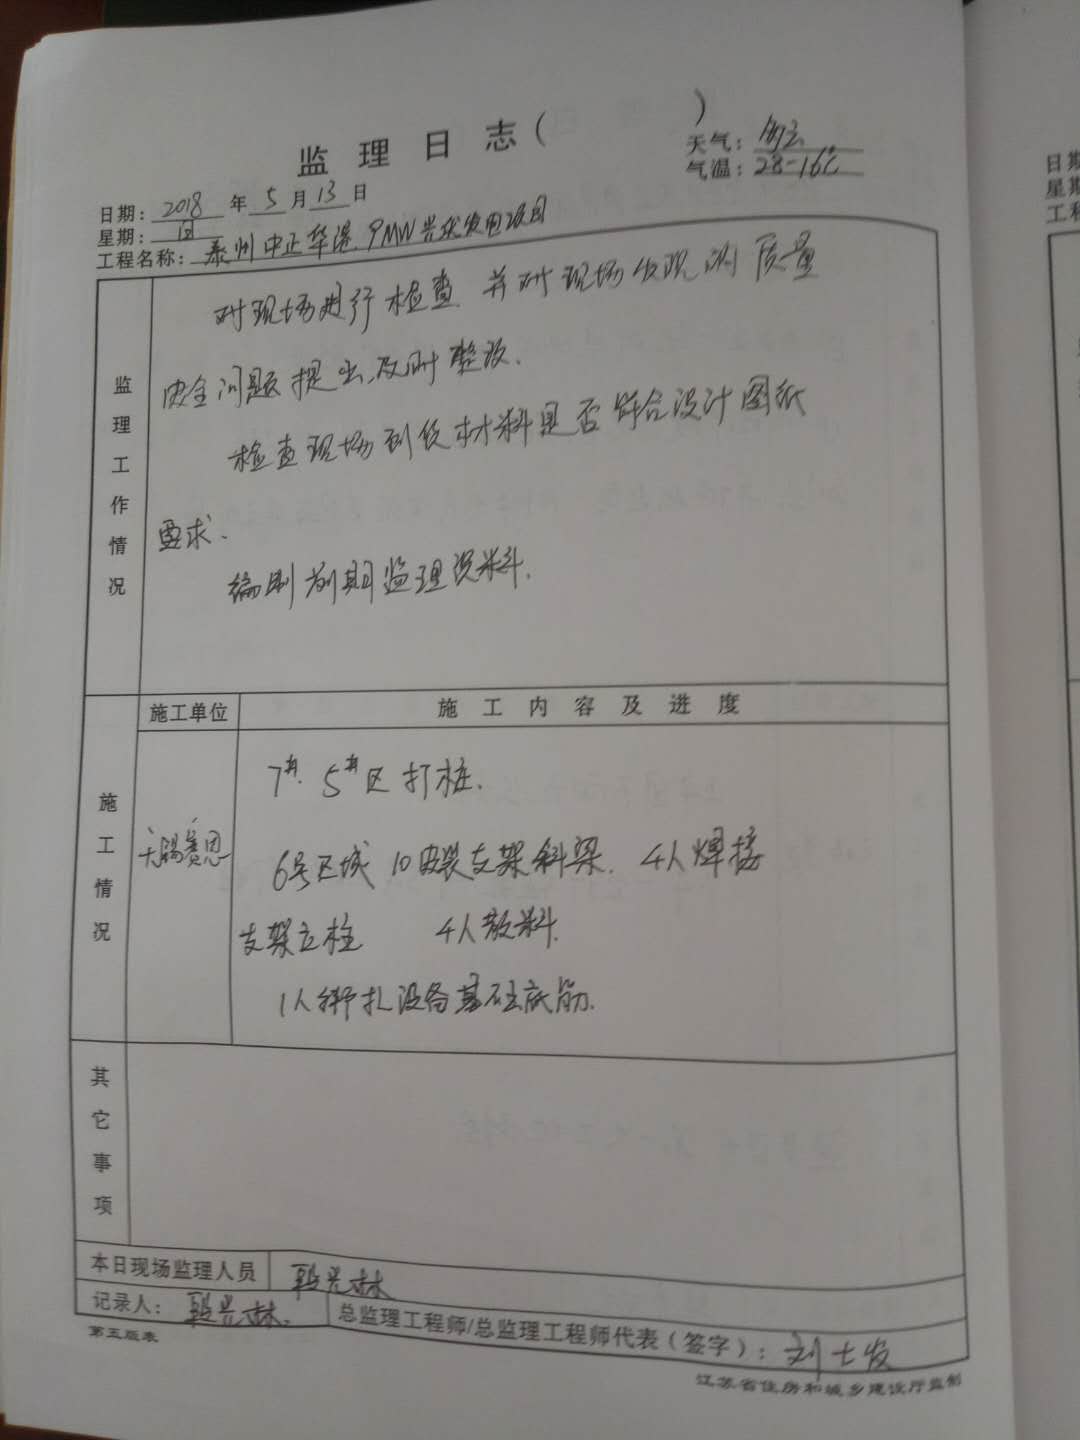 监理日志(          )
天气：多云
气温：28-16℃
日期：2018年5月13日
星期：日
工程名称：泰州中正华港 9MW光伏发电项目
监理工作情况
对现场进行检查 并对现场发现的质量
安全问题提出,及时整改.
检查现场到货材料是否符合设计图纸
要求.
编制前期监理资料.
施工情况
施工单位
施工内容及进度
无锡赛恩
7#. 5#区打桩.
6号区域 10安装支架斜梁. 4人焊接
支架立柱 4人散料.
1人绑扎设备基础底筋.
其它事项
本日现场监理人员
记录人：
总监理工程师/总监理工程师代表(签字)：
第五版表
江苏省住房和城乡建设厅监制